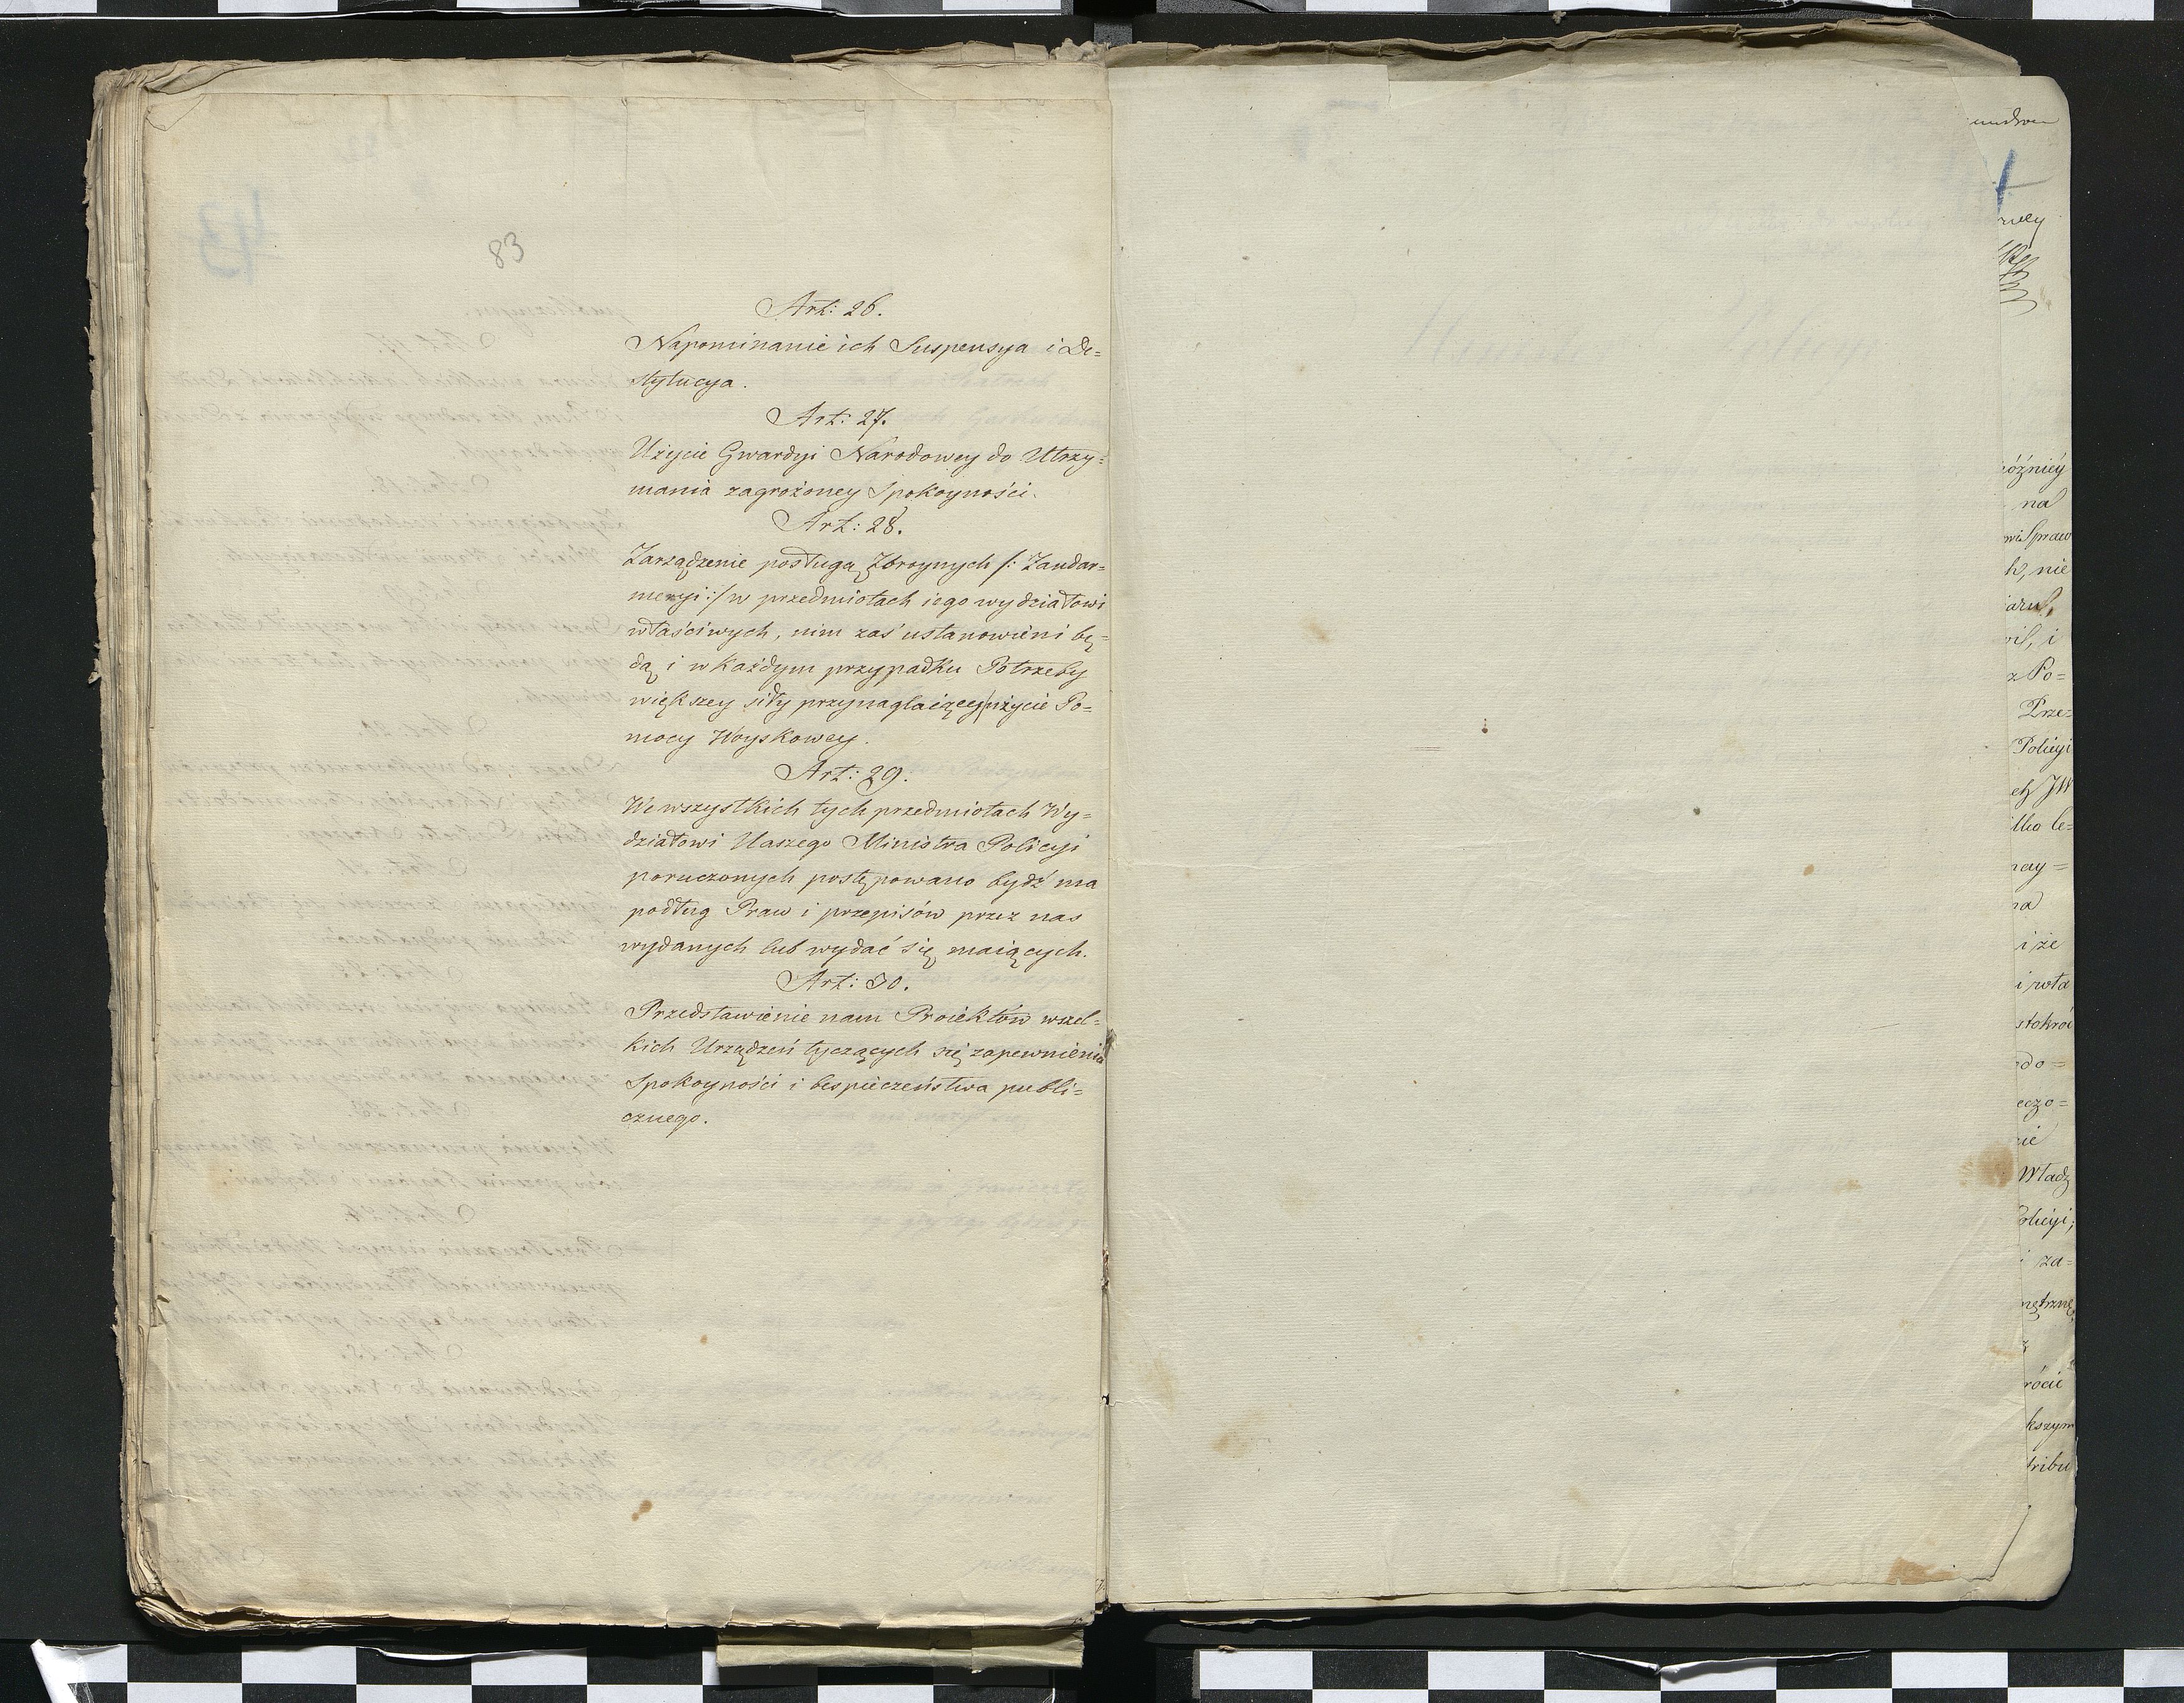 83
Art: 26.
Napominanie ich Suspensya i De=
stytucya.
Art: 27.
Użycie Gwardyi Narodowey do Utrzy=
mania zagrożoney Spokoyności.
Art: 28.
Zarządzenie posługą Zbroynych /: Zandar=
meryi :/ w przedmiotach iego wydziałowi
właściwych, nim zaś ustanowieni bę=
dą i w każdym przypadku Potrzeby
większey siły przynaglaiącey użycie Po=
mocy Woyskowey.
Art: 29.
We wszystkich tych przedmiotach Wy=
działowi Naszego Ministra Policyi
poruczonych postępowano bydź ma
podług Praw i przepisów przez nas
wydanych lub wydać się maiących.
Art: 30.
Przedstawienie nam Proiektów wszel=
kich Urządzeń tyczących się zapewnienia
Spokoyności i bespieczeństwa publi=
cznego.
óźniéy
na
Spraw
h, nie
i
z Po=
Prze=
Policyi
JW
le=
nay=
na
i że
i rota
stokroć
odo=
eczo=
nie
Władz
olicyi;
i za=
nętrzne
rócie
kszym
tribu